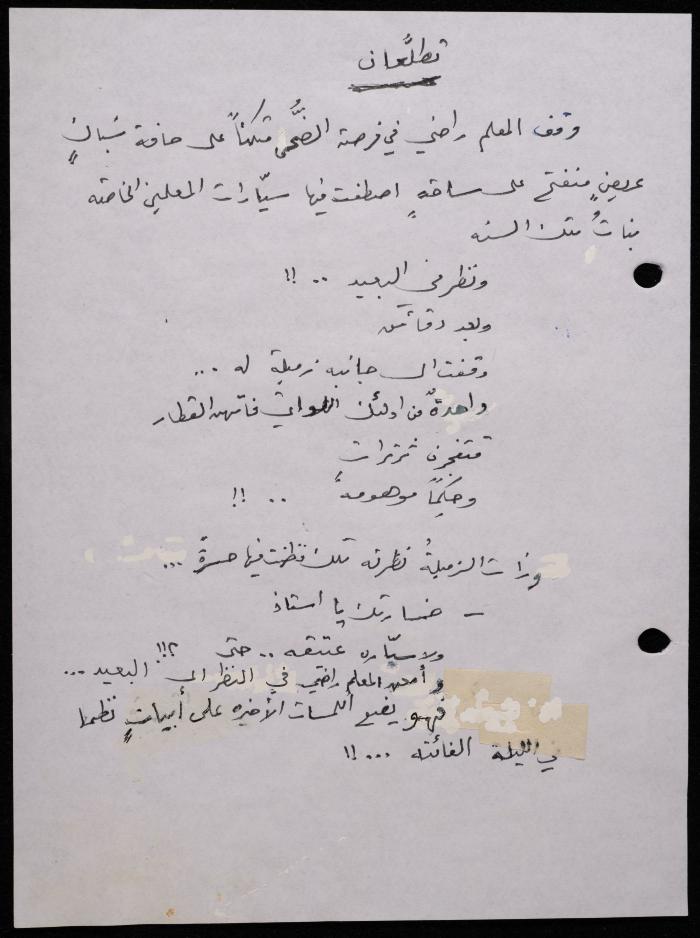 تطلُّعان
وقف المعلم راضي في فرصة الضُّحى متكئاً على حافة شبّاكٍ
عريضٍ منفتح على ساحةٍ اصطفت فيها سيّارات المعلمين الخاصّه
بنات تلك السنه
ونظر في البعيد .. !!
وبعد دقائق
وقفت الى جانبه زميلة له ...
واحدةٌ من اولئك اللواتي فاتهن القطار
فتفجرن ثرثرات
وحِكَماً موهومةً .. !!
وزات الزميلةُ نظرته تلك فظنت فيها حسرةً ...
- خسارتك يا استاذ
ولا سيّاره عتيقه .. حتى ؟!!
وأمعن المعلم راضي في النظر الى البعيد ...
فهو يضع اللمسات الأخيره على أبياتٍ نظمها
في الليلة الفائته ... !!